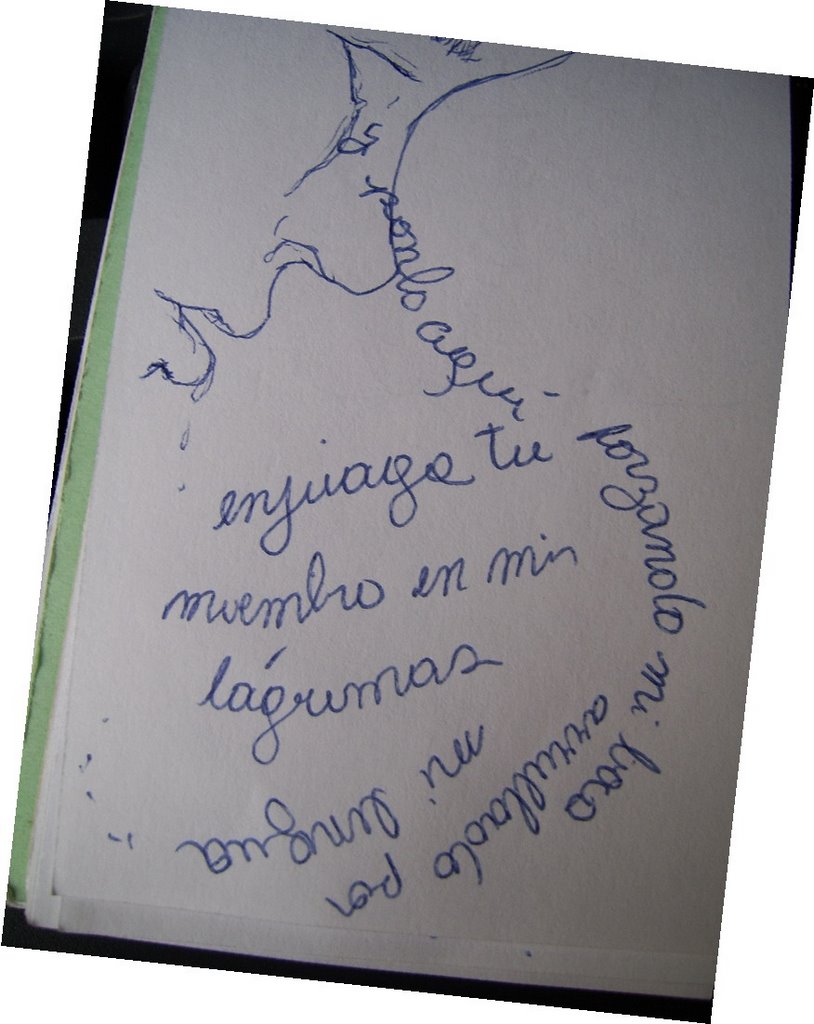 ponlo aquí
enjuaga tu
miembro en mis
lágrimas
forzando mi
arrullado por
mi lengua